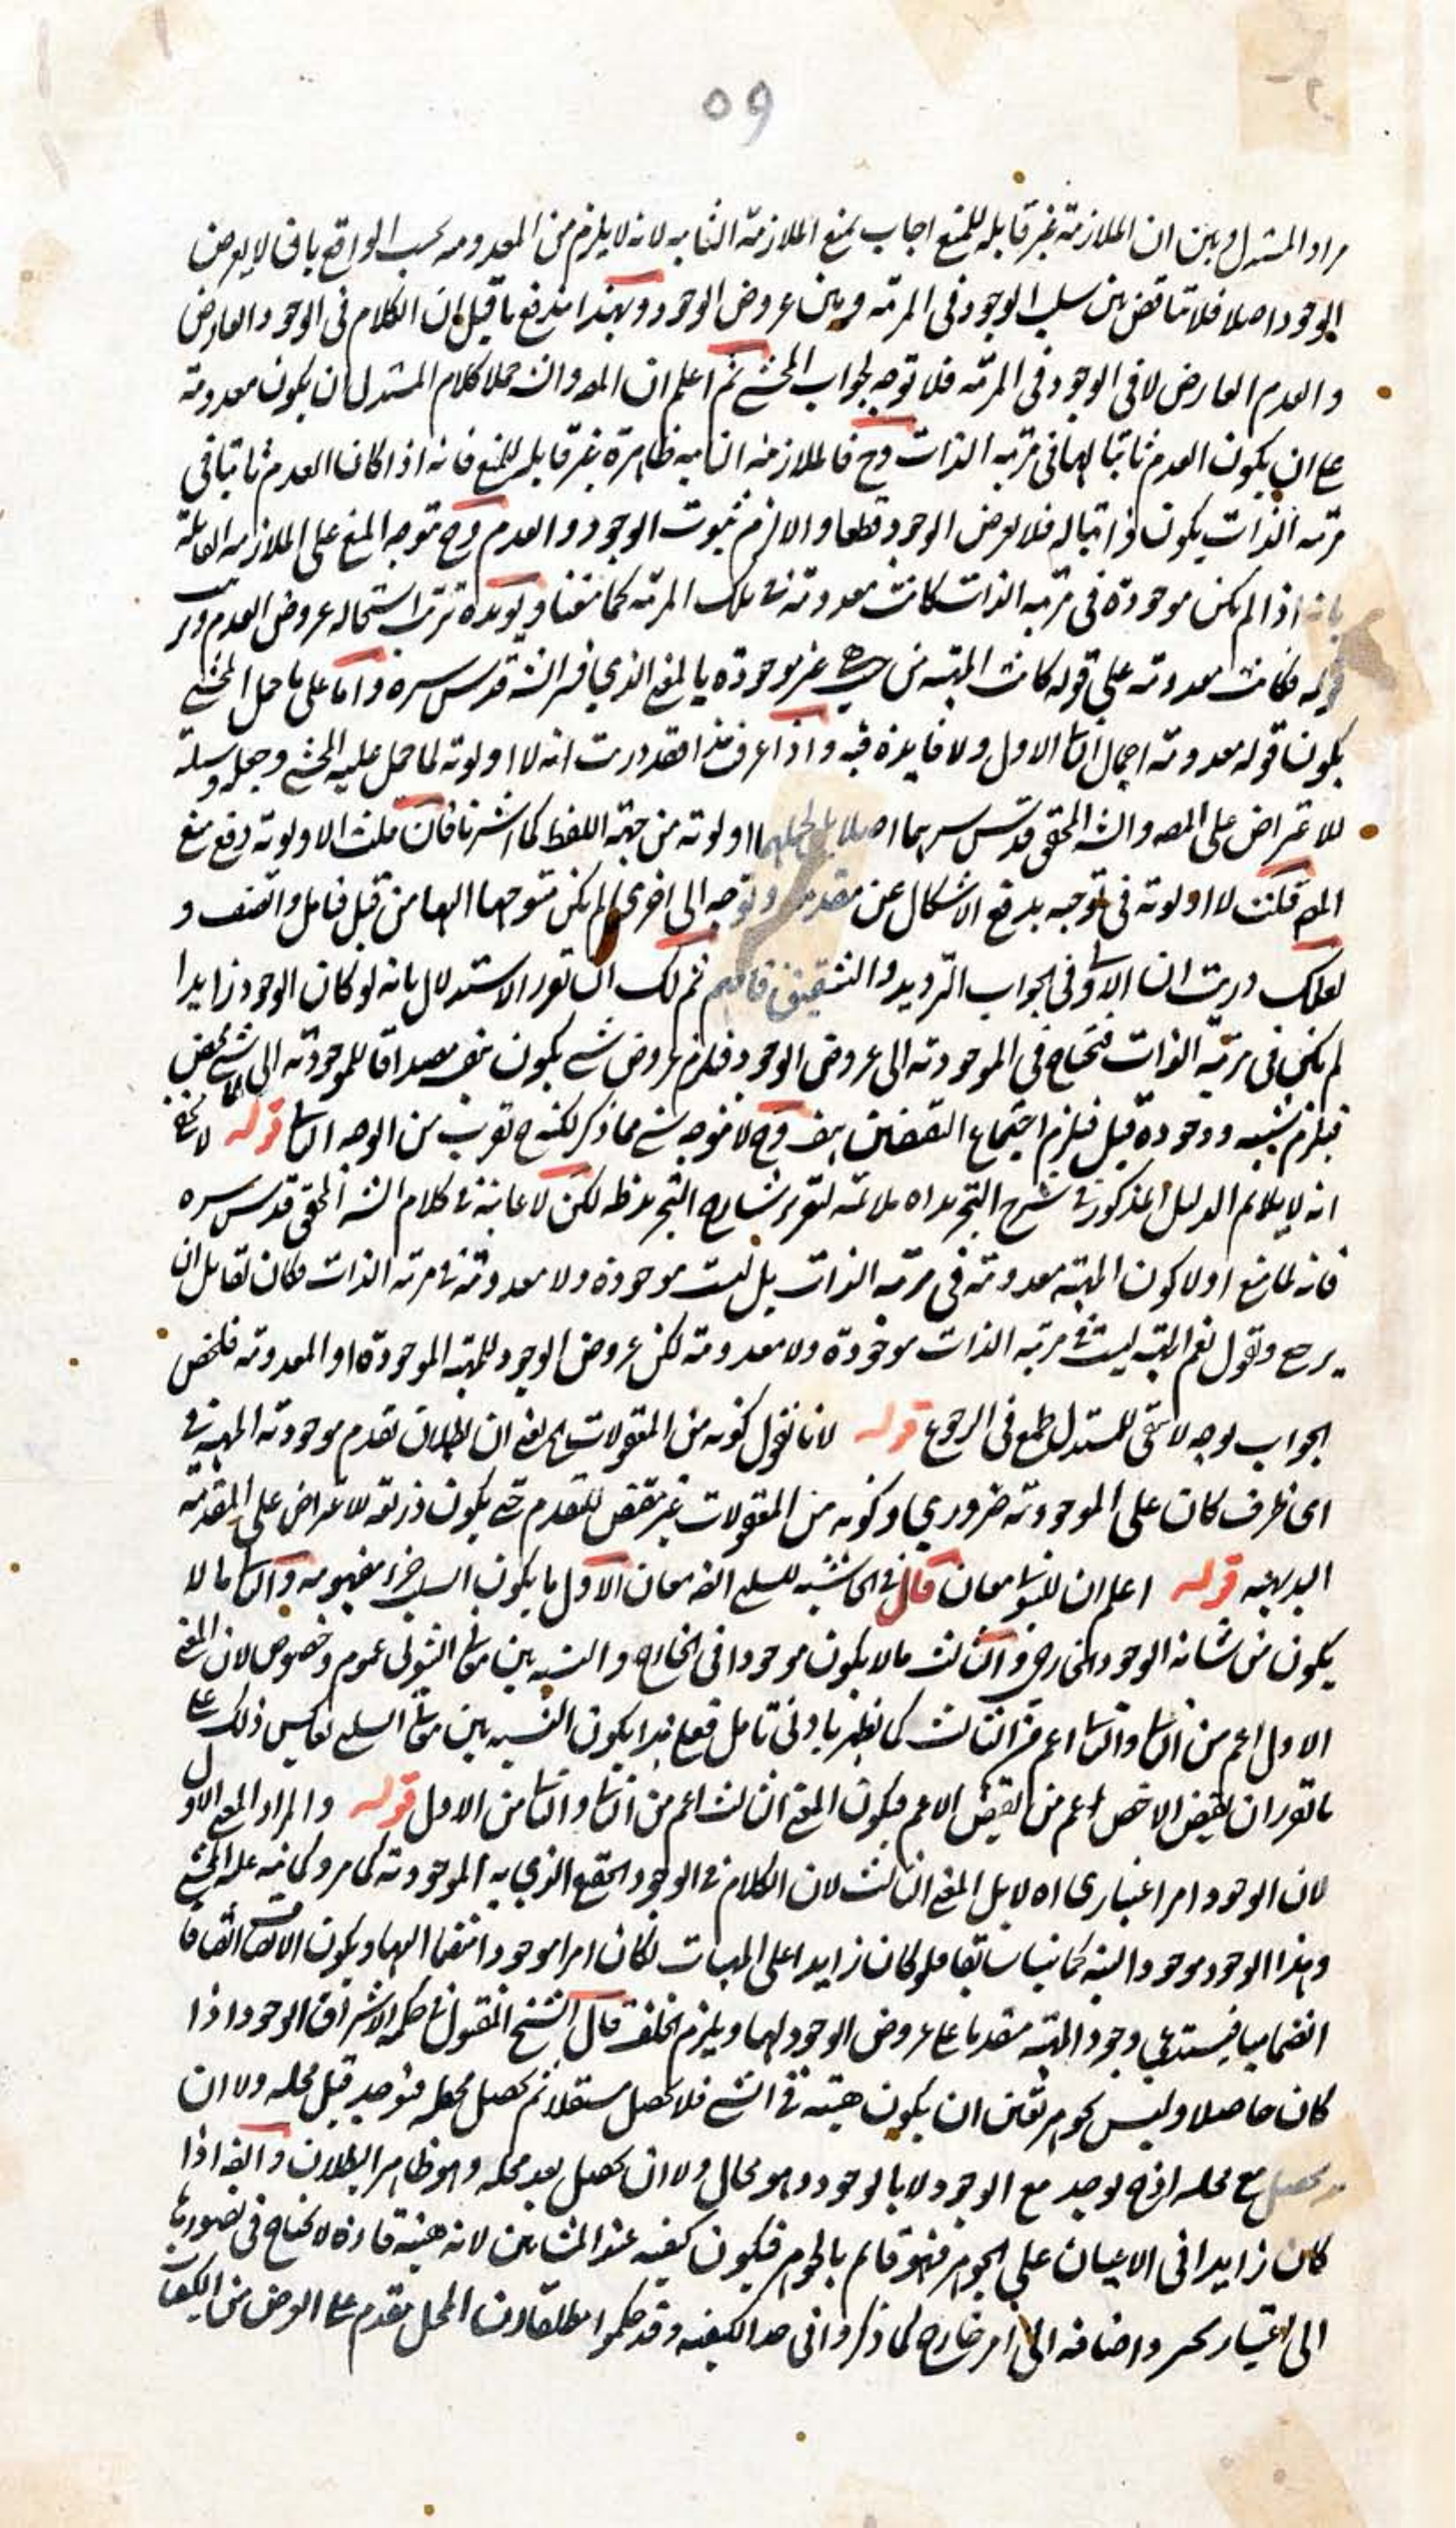 ٥٩
مراد المستدل وبين ان الملازمة غير قابله للمنع اجاب بمنع الملازمة الثانيه لانه لا يلزم من المعدوميه بحسب الواقع بان لا يعرض
الوجود اصلا فلا تناقض بين سلب الوجود فى المرتبه وبين عروض الوجود وبهذا يندفع ما قيل ان الكلام فى الوجود العارض
والعدم العارض لا فى الوجود فى المرتبه فلا توجه لجواب المحشے ثم اعلم ان المصه والشه حملا كلام المستدل ان يكون معدومة
علے ان يكون العدم ثابتا لها فى مرتبه الذات وح فالملازمه الثانيه ظاهرة غير قابله للمنع فانه اذا كان العدم ثابتا فى
مرتبه الذات يكون ذاتيا له فلا يعرض الوجود قطعا والا لزم ثبوت الوجود والعدم وح يتوجه المنع على الملازمه القائلة
بانه اذا لم يكن موجودة فى مرتبه الذات كانت معدومة فے تلك المرتبه كما منعنا ويويده ترتب استحاله عروض العدم
قوله فكانت معدومة على قوله كانت المهيه من حيث هے غير موجوده بالمعنے الذي فسر الشه قدس سره واما على ما حمل المحشے
يكون قوله معدومة اجمال الاول ولا فايده فيه واذا عرفت هذا فقد دريت انه لا اولوية لما حمل عليه المحشے وجعله وسيلة
للاعتراض على المصه والشه المحقق قدس سرهما اصلا بل لحملهما اولوية من جهة اللفظ كما اشرنا فان قلت الاولوية دفع منع
المصه قلت لا اولوية فى توجيه يدفع الاشكال عن مقدمه وتوجه الى اخرى لم يكن متوجها اليها من قبل فتامل وانصف و
لعلك دريت ان الاولى فى الجواب الترديد والتشقيق فافهم ثم لك ان تقرر الاستدلال بانه لو كان الوجود زايدا
لم يكن فى مرتبة الذات فتحتاج فى الموجودية الى عروض الوجود فلزم عروض شے يكون بنفسه مصداقا للموجودية الى
فيلزم قبل فيلزم اجتماع النقيضين بنفسه وح لا يتوجه شے مما ذكر لكنه ح تقرب من الوجه قوله لا يخفے
انه لا يلائم الدليل المذكور فے شرح التجريد اه ملائمة لتقرير شارح التجريد ظه لكن لا عاينة فے كلام الشه المحقق قدس سره
فانه لما منع اولا كون المهيه معدومة فى مرتبة الذات بل ليست موجوده ولا معدومة فے مرتبه الذات فكان لقائل ان
يرجع ويقول نعم المهيه ليست فے مرتبه الذات موجودة ولا معدومة لكن عروض الوجود للمهيه الموجودة او المعدومة فلخص
الجواب بوجه لا يبقى للمستدل طمع فى الرجوع قوله لانا نقول كونه من المقولات اه يعنے ان بطلان تقدم موجودية المهيه فے
اى ظرف كان على الموجودية ضروري وكونه من المقولات غير مقتض للتقدم حتے يكون ذريعة للاعتراض على المقدمه
البديهيه قوله اعلم ان للثبوت معان قال فى الحاشيه للسلب ايضه معان الاول ما يكون السلب جزء مفهومه والثانى ما لا
يكون من شانه الوجود الخارجى والثالث ما لا يكون موجودا فى الخارج والنسبه بين معانى الثبوتى عموم وخصوص لان المعنے
الاول اعم من الثانى والثانى اعم من الثالث كما يظهر بادنى تامل فعلى هذا يكون النسبه بين معانى السلب بعكس ذلك علے
ما تقرر ان نقيض الاخص اعم من نقيض الاعم فيكون المعنے الثالث اعم من الثانى والثانى من الاول قوله والمراد المعنے الاول
لان الوجود امر اعتبارى اه لا بل المعنے الثالث لان الكلام فے الوجود الحقيقے الذي به الموجودية كما مر وكما نبه عليه المحشے
وهذا الوجود موجود البته كما بينا سابقا فلو كان زايدا على المهيات لكان امرا موجودا منضما اليها ويكون الاتصاف اتصافا
انضماميا فيستدعي وجود المهيه مقدما علے عروض الوجود لها ويلزم الخلف قال الشيخ المقتول فے حكمه الاشراق الوجود اذا
كان حاصلا وليس بجوهر تعين ان يكون هيئه فے الشے فلا يحصل مستقلا ثم يحصل محله فيوجد قبل محله ولا ان
يحصل مع محله اذ ح يوجد مع الوجود لا بالوجود وهو محال ولا ان يحصل بعد محله وهو ظاهر البطلان وايضه اذا
كان زايدا فى الاعيان على الجوهر فهو قائم بالجوهر فيكون كيفيه عند المشائين لانه هيئه قاره لا يحتاج فى تصورها
الى اعتبار تجز واضافه الى امر خارج كما ذكروا فى حد الكيفيه وقد حكموا مطلقا ان المحل يتقدم علے العرض من الكيفيات